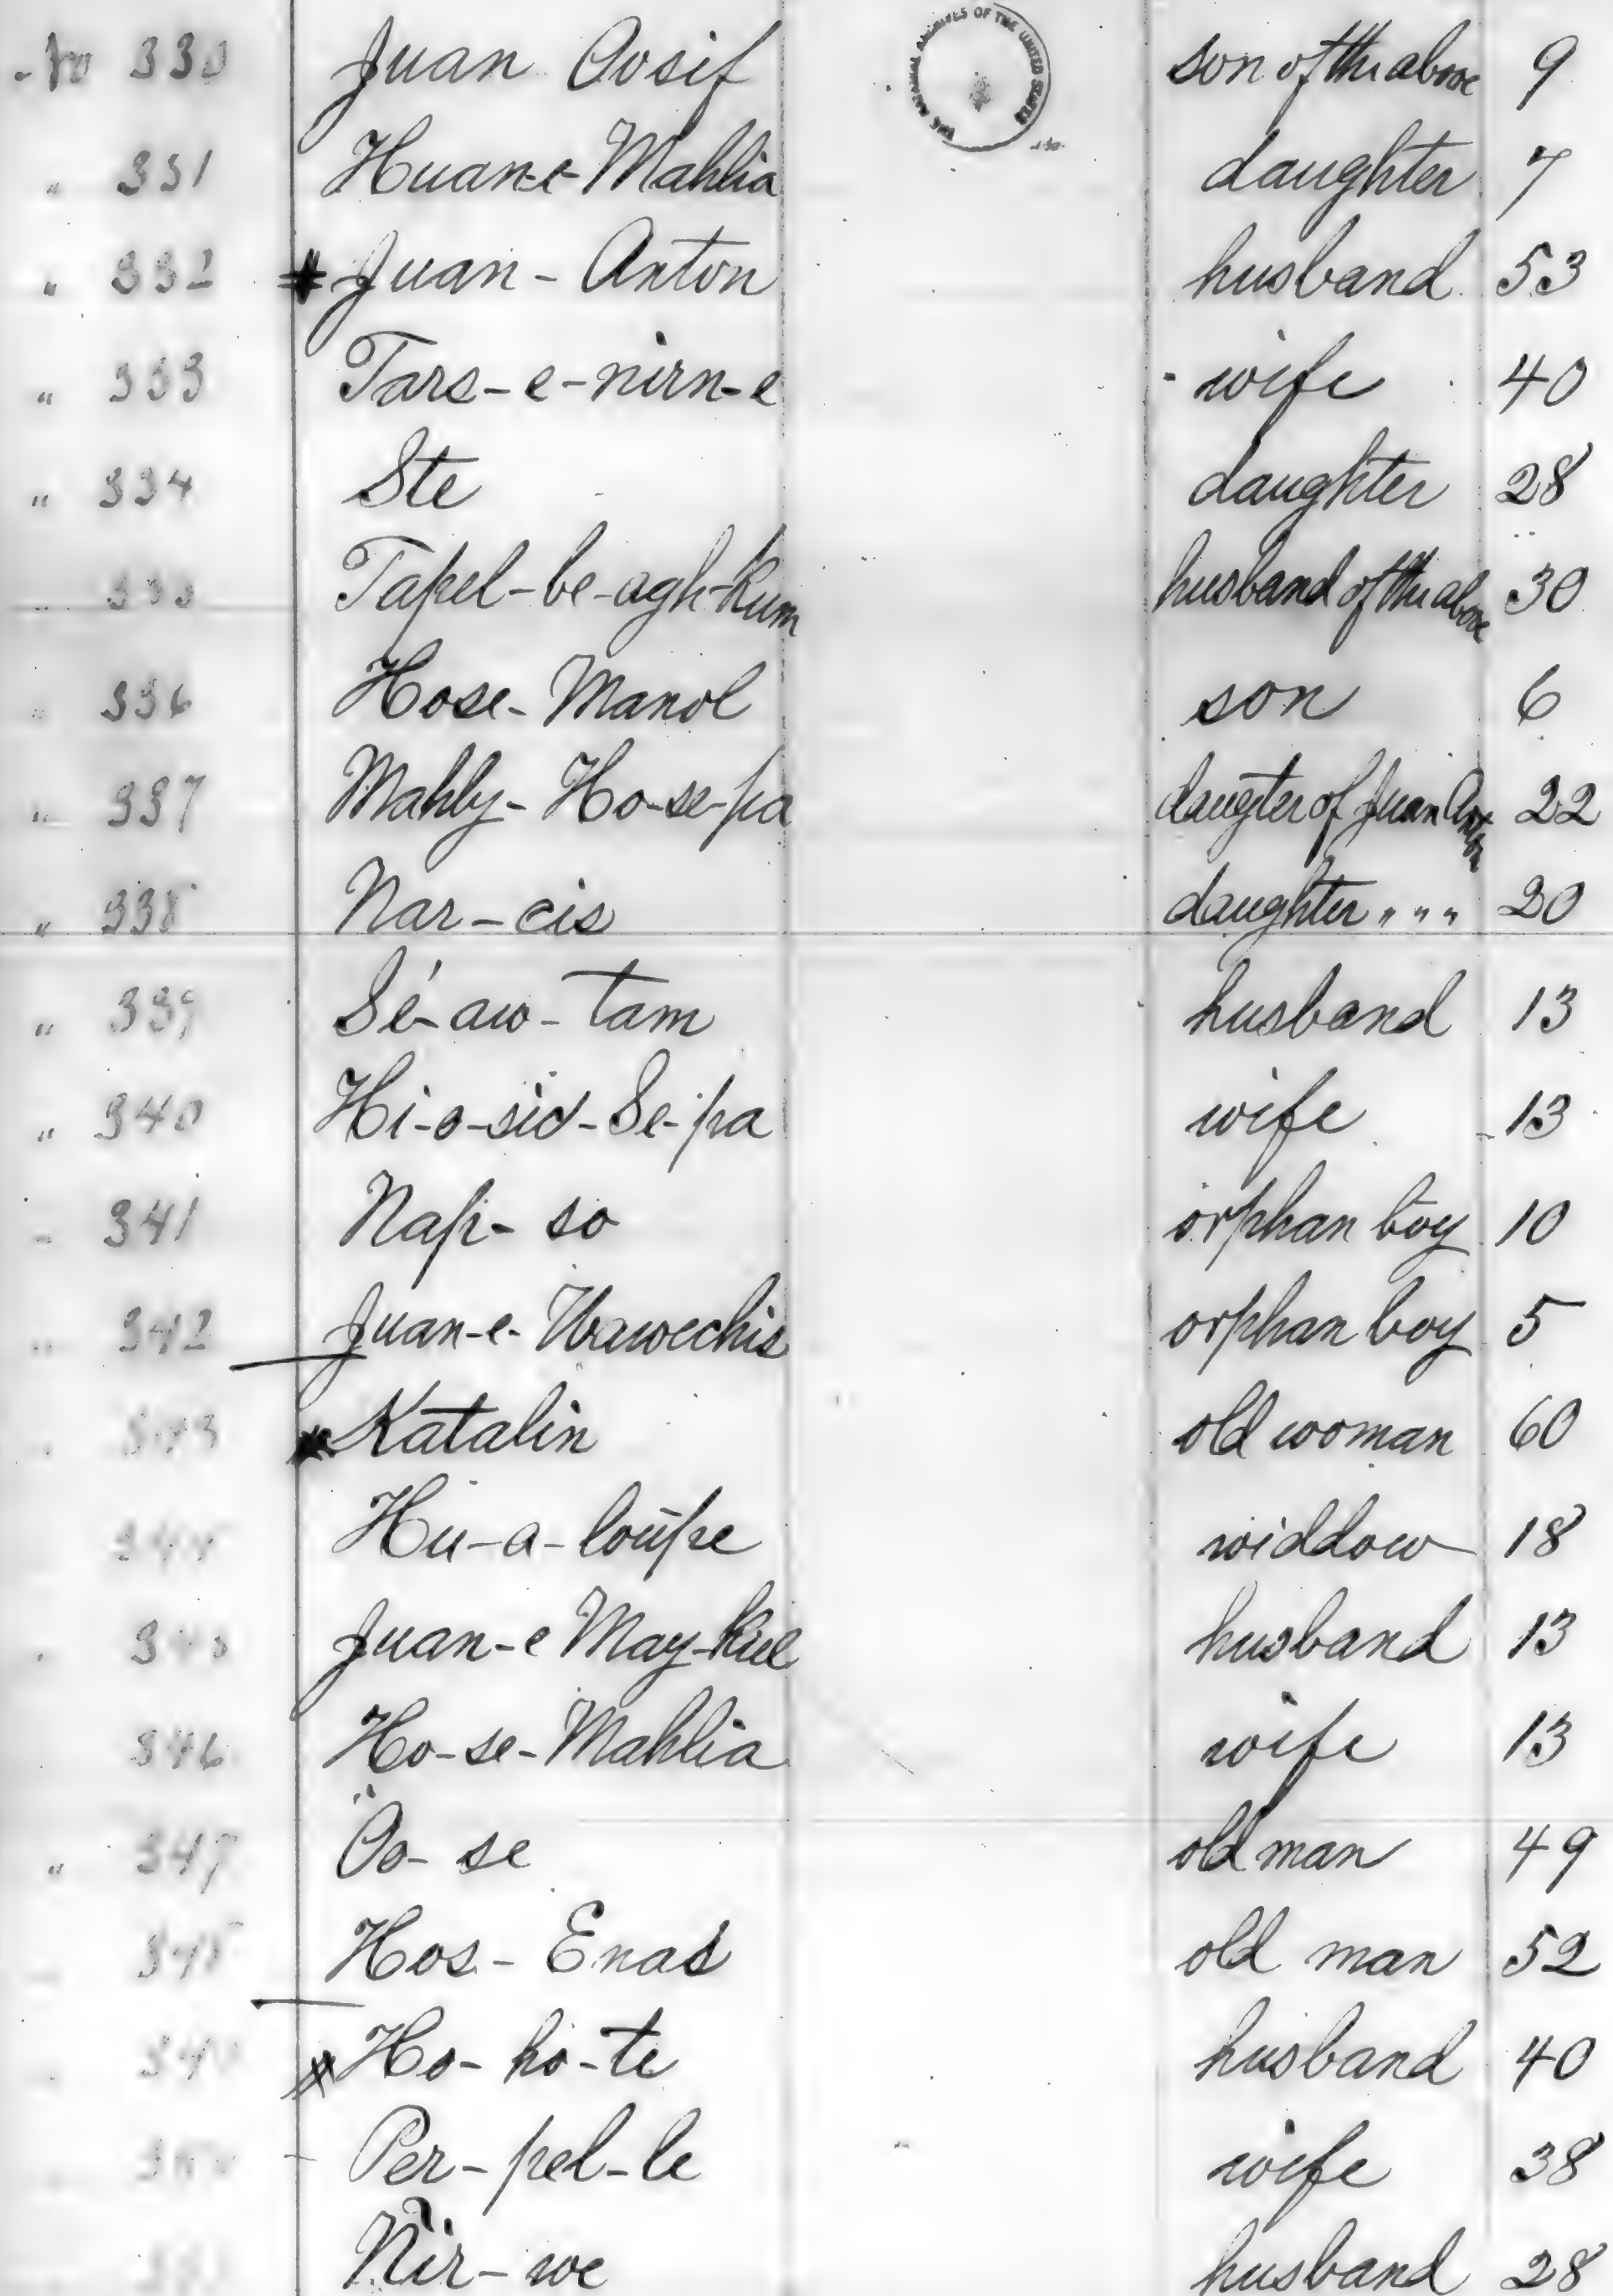 No 330 Juan Oosif son of the above 9
THE NATIONAL ARCHIVES OF THE UNITED STATES
" 331 Huan-e-Mahlia daughter 7
" 332 Juan-Anton husband 53
" 333 Tars-e-nirn-e wife 40
" 334 Ste daughter 28
" 335 Tapel-be-agh-kum husband of the above 30
" 336 Hose-Manol son 6
" 337 Mahly-Ho-se-pa daugter of Juan Anton 22
" 338 Nar-cis daughter " " " 20
" 339 Sé-aw-tam husband 13
" 340 Hi-o-sid-Se-pa wife 13
341 Nap-so orphan boy 10
" 342 Juan-e- orphan boy 5
343 Katalin old woman 60
344 Hu-a-loupe widdow 18
345 Juan-e May-kiel husband 13
346 Ho-se-Mahlia wife 13
" 347 Oo-se old man 49
348 Hos-Enas old man 52
349 Ho-ho-te husband 40
350 Per-pel-le wife 38
Nir-we husband 28